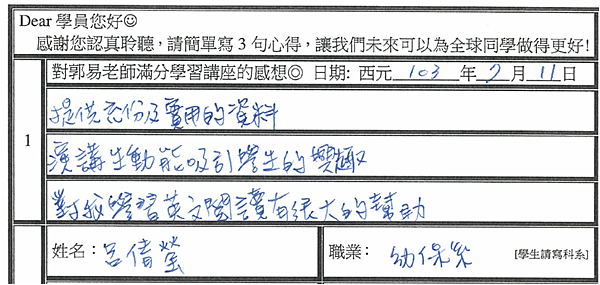 Dear 學員您好☺
感謝您認真聆聽，請簡單寫 3 句心得，讓我們未來可以為全球同學做得更好!
對郭易老師滿分學習講座的感想◎ 日期: 西元 103 年 7 月 11 日
1
提供充份及實用的資料
演講生動能吸引學生的興趣
對我學習英文閱讀有很大的幫助
姓名：呂倩瑩 職業： 幼保系 [學生請寫科系]